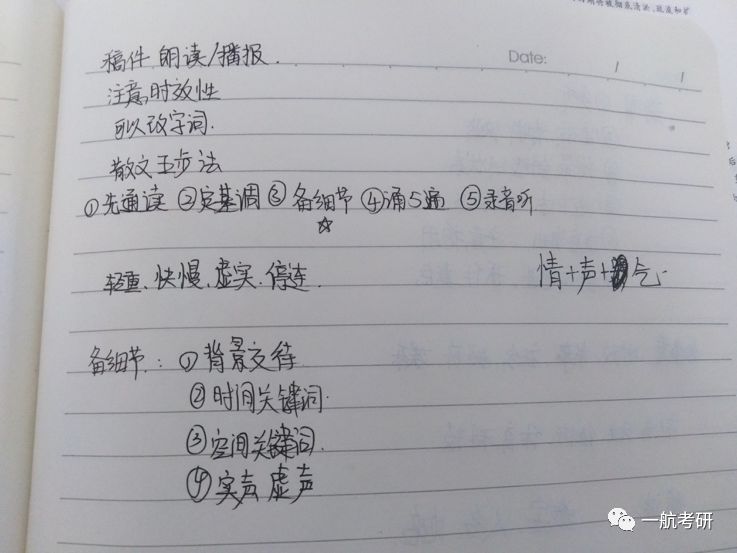 稿件 朗读/播报.
Date: / /
注意时效性
可以改字词.
散文五步法
①先通读 ②定基调 ③备细节 ④诵5遍 ⑤录音听
☆
轻重、快慢、虚实、停连 情+声+气
备细节: ①背景交待
②时间关键词.
③空间关键词.
④实声 虚声
一航考研